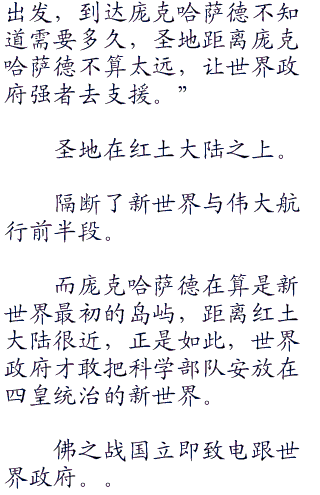 出发，到达庞克哈萨德不知
道需要多久，圣地距离庞克
哈萨德不算太远，让世界政
府强者去支援。”
圣地在红土大陆之上。
隔断了新世界与伟大航
行前半段。
而庞克哈萨德在算是新
世界最初的岛屿，距离红土
大陆很近，正是如此，世界
政府才敢把科学部队安放在
四皇统治的新世界。
佛之战国立即致电跟世
界政府。。